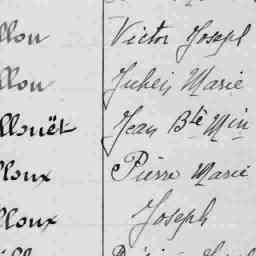 llon Victor Joseph
llon Julien Marie
llouët Jean Bte Min
lloux Pierre Marie
lloux Joseph